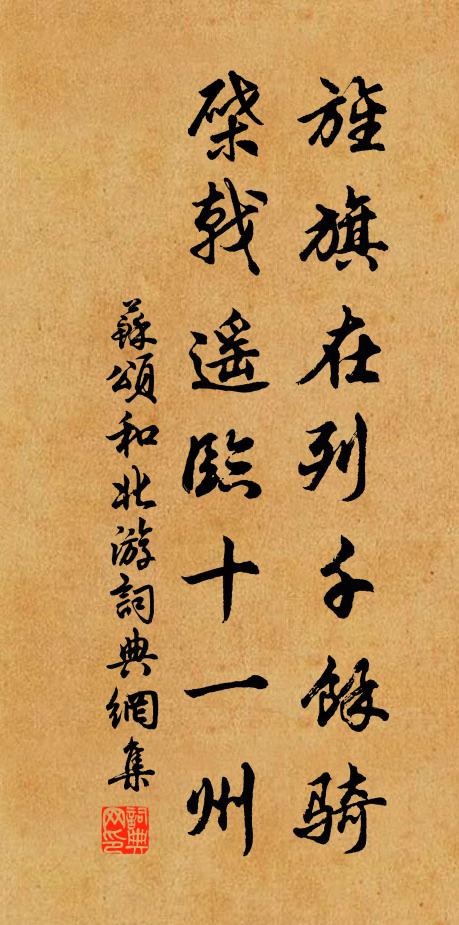 旌旗在列千餘騎
棨戟遥臨十一州
蘇頌和北游詞典網集
詞典網印